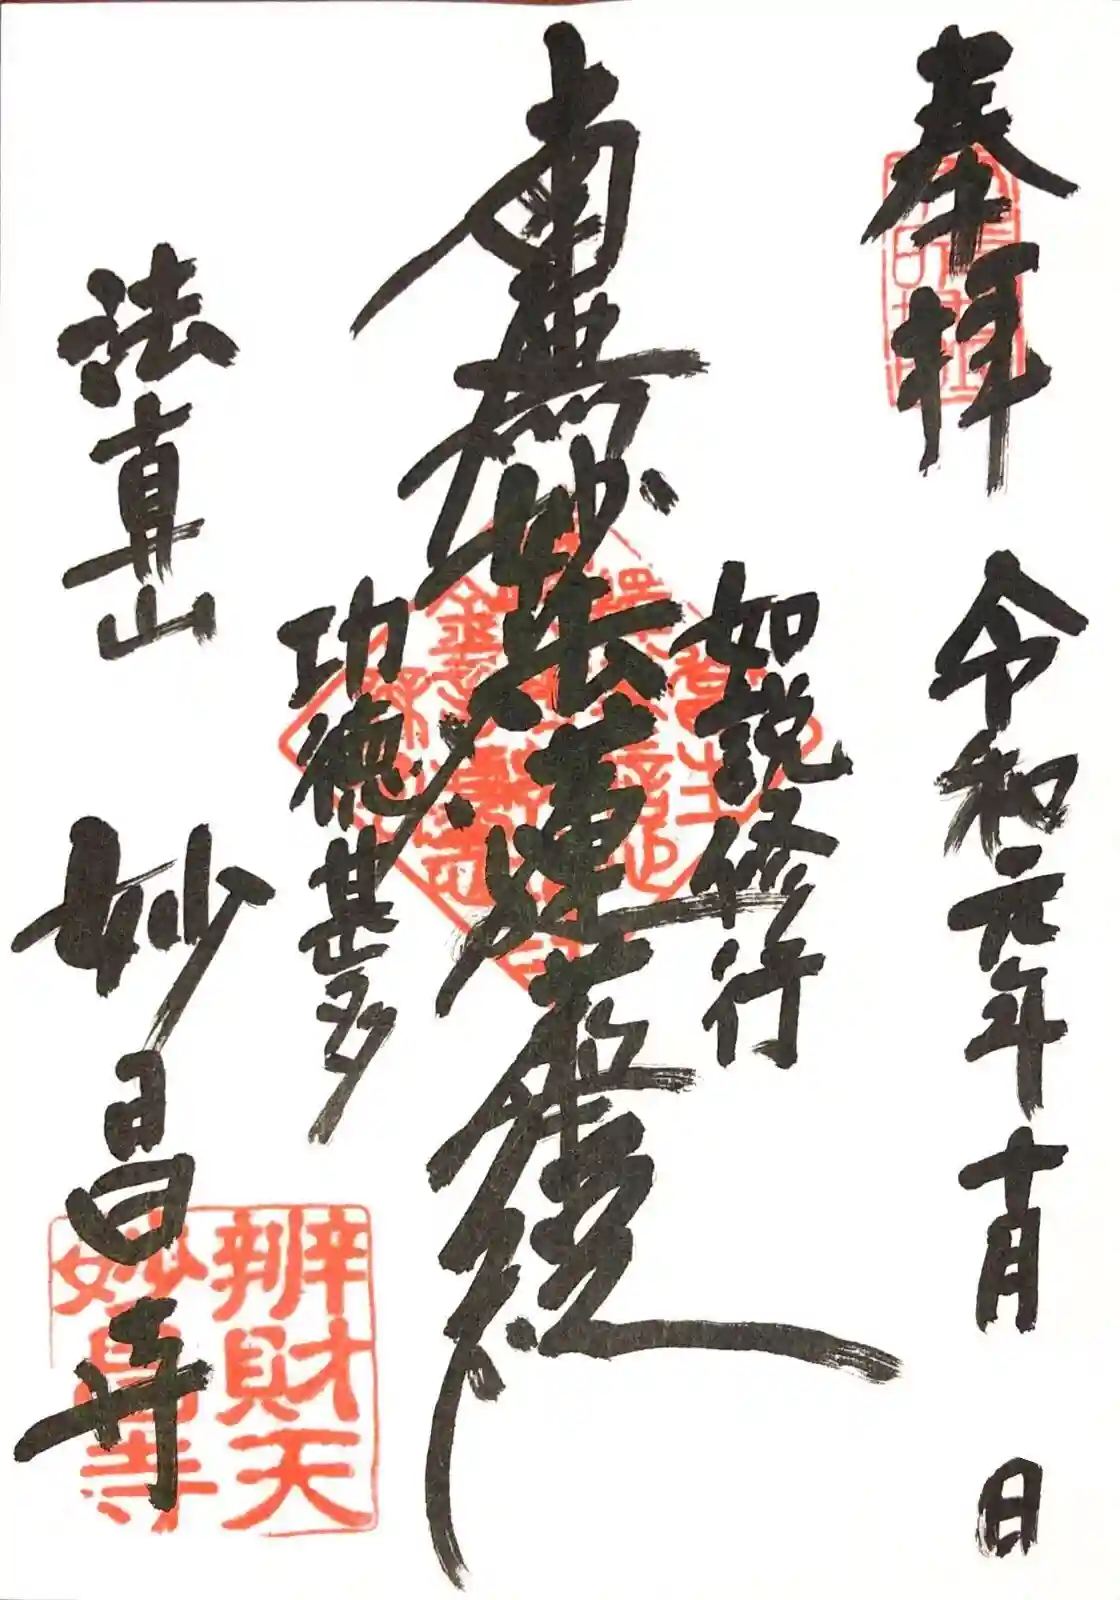 奉拝
令和元年十月 日
如説修行
南無妙法蓮華経
功徳甚多
法真山
妙昌寺
辨財天
妙昌寺